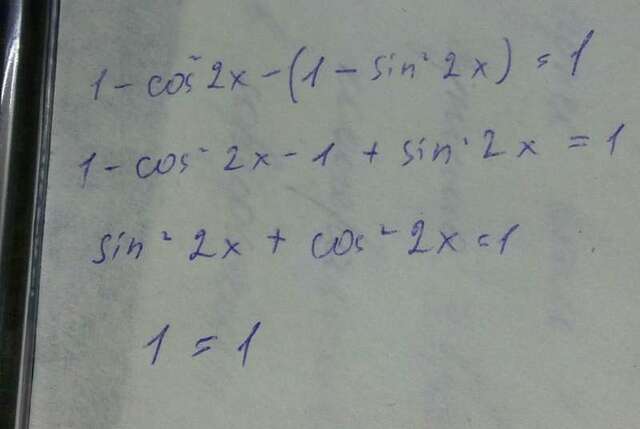 1 - cos² 2x - (1 - sin² 2x) = 1
1 - cos² 2x - 1 + sin² 2x = 1
sin² 2x + cos² 2x = 1
1 = 1